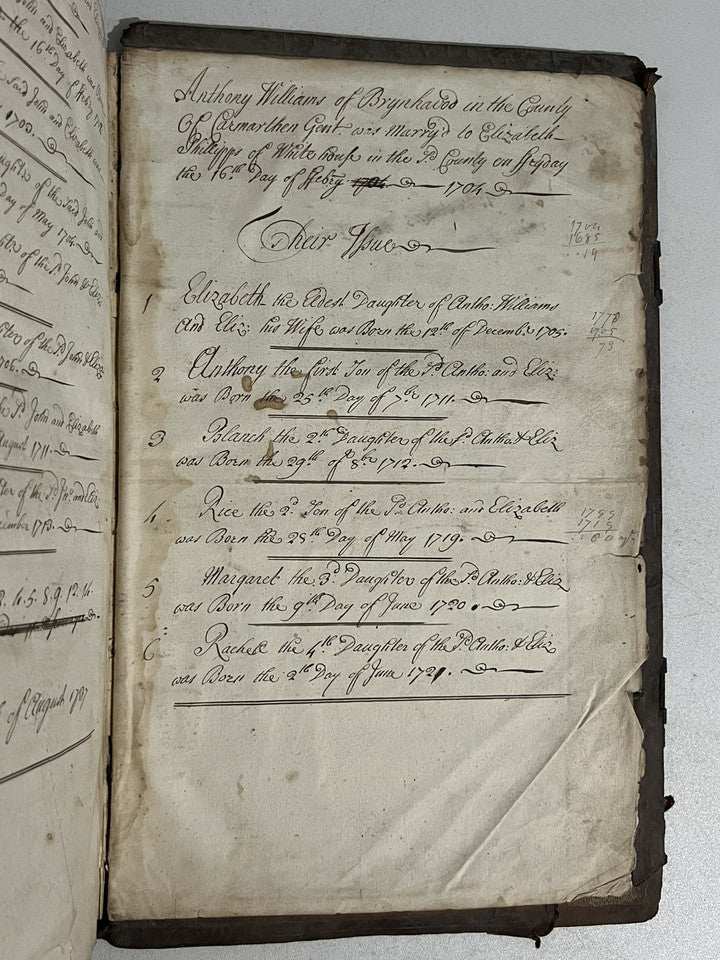 and Elizabeth was
the 16th Day of Febry
said John and Elizabeth was
1703.
Daughter of the said John and
Day of May 1704
of the Sd. John & Eliz
of the Sd John & Eliz
1706.
the Sd John and Elizabeth
August 1711.
of the Sd Jno. and Eliz
December 1713.
4. 5. 8. 9. 12. 14.
of August 1737
Anthony Williams of Brynhavod in the County
Of Carmarthen Gent was Marry'd to Elizabeth
Philipps of White house in the Sd County on ffryday
the 16th Day of ffebry 1704
Their Issue
1704
1685
19
1 Elizabeth the Eldest Daughter of Antho: Williams
And Eliz: his Wife was Born the 12th of Decembr 1705.
1778
1705
73
2 Anthony the first Son of the Sd Antho: and Eliz:
was Born the 25th Day of 7br 1711.
3 Blanch the 2d Daughter of the Sd. Antho: & Eliz
was Born the 29th of 8br 1712.
4. Rice the 2d. Son of the Sd Antho: and Elizabeth
was Born the 28th Day of May 1719.
1799
1719
80
5 Margaret the 3d Daughter of the Sd Antho: & Eliz
was Born the 9th Day of June 1720.
6 Rachel the 4th Daughter of the Sd Antho: & Eliz
was Born the 2d Day of June 1721.